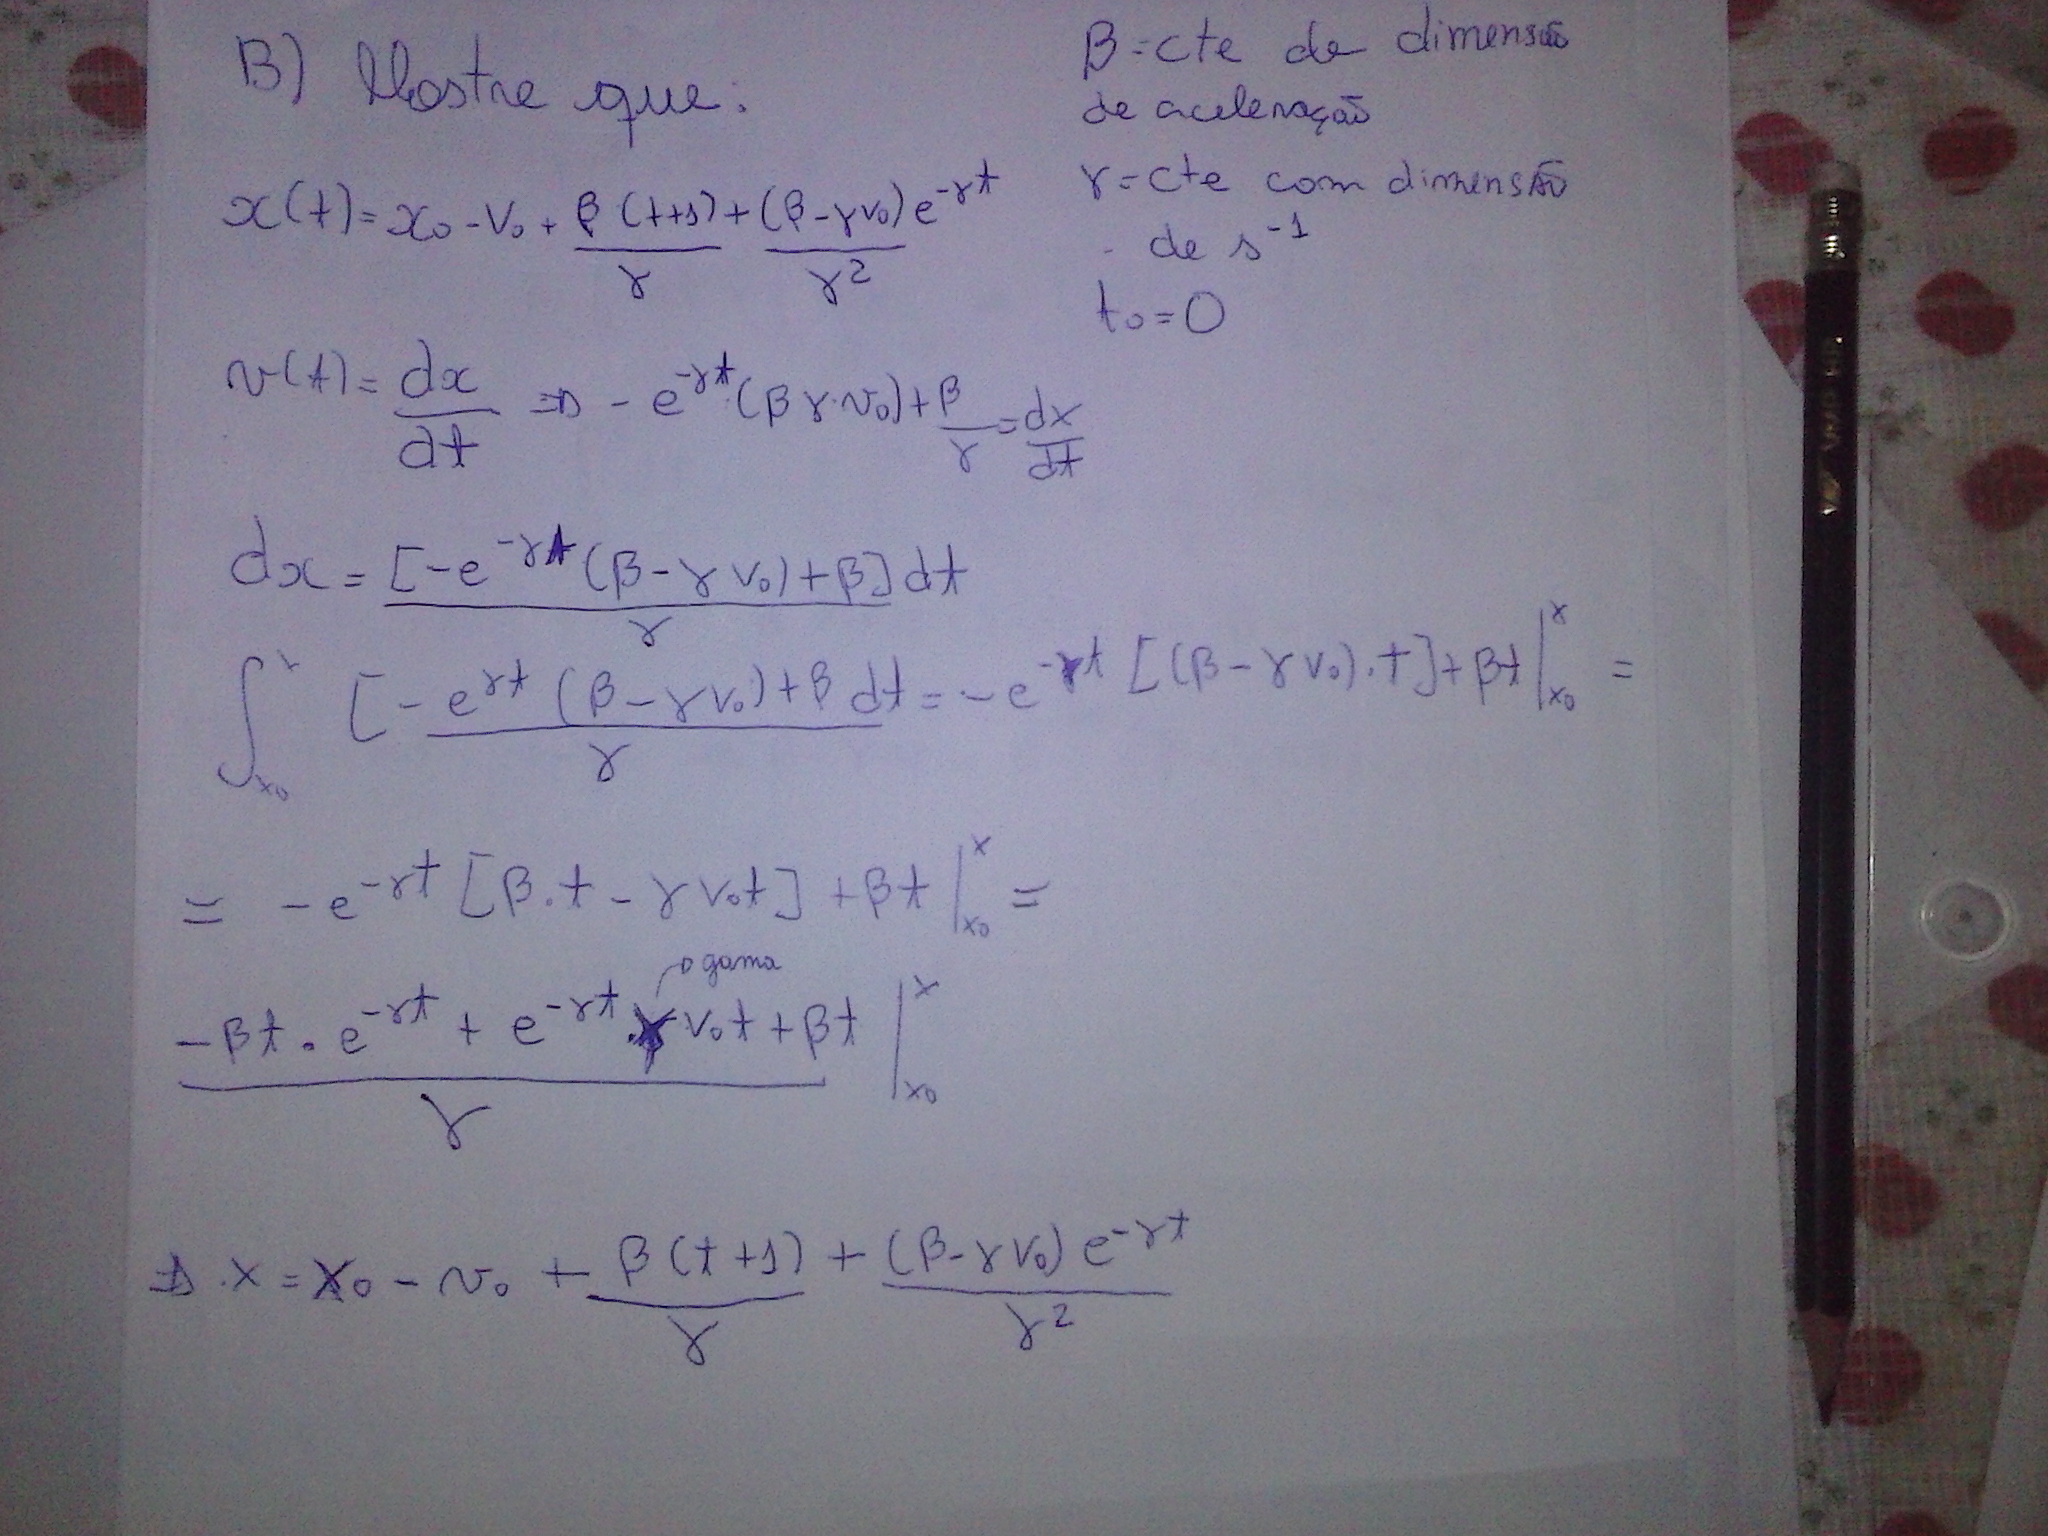 B) Mostre que:
β=cte de dimensão
de aceleração
γ=cte com dimensão
de s^-1
t0=0
x(t)=x0-V0+β(t+1)/γ+(β-γv0)e^-γt/γ^2
v(t)=dx/dt ⇒ -e^-γt·(βγ·v0)+β/γ=dx/dt
dx=[-e^-γt(β-γv0)+β]dt/γ
∫_x0^x [-e^γt(β-γv0)+β dt/γ=-e^-γt[(β-γv0).t]+βt|_x0^x =
= -e^-γt[β.t-γv0t]+βt|_x0^x =
→gama
-βt.e^-γt+e^-γt.γv0t+βt/γ|_x0^x
⇒ .x=x0-v0+β(t+1)/γ+(β-γv0)e^-γt/γ^2